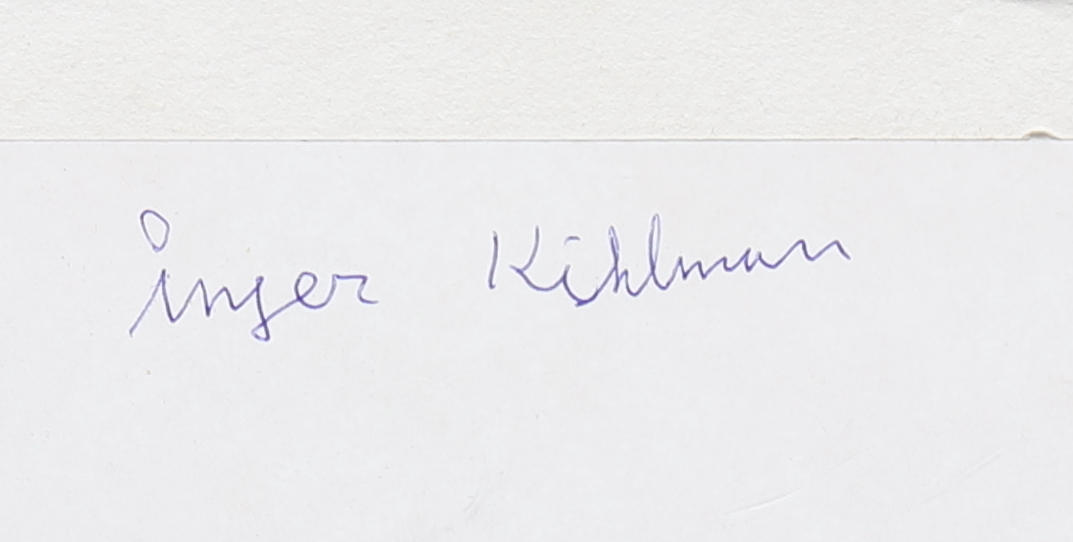 Inger Kihlman